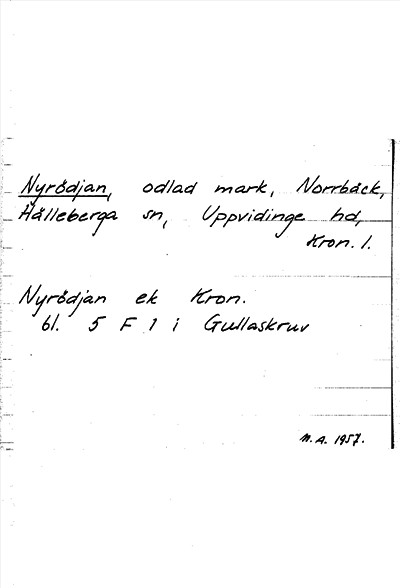 Nyrödjan, odlad mark, Norrbäck,
Hälleberga sn, Uppvidinge hd,
Kron. l.
Nyrödjan ek Kron.
bl. 5 F 1 i Gullaskruv
M.A. 1957.